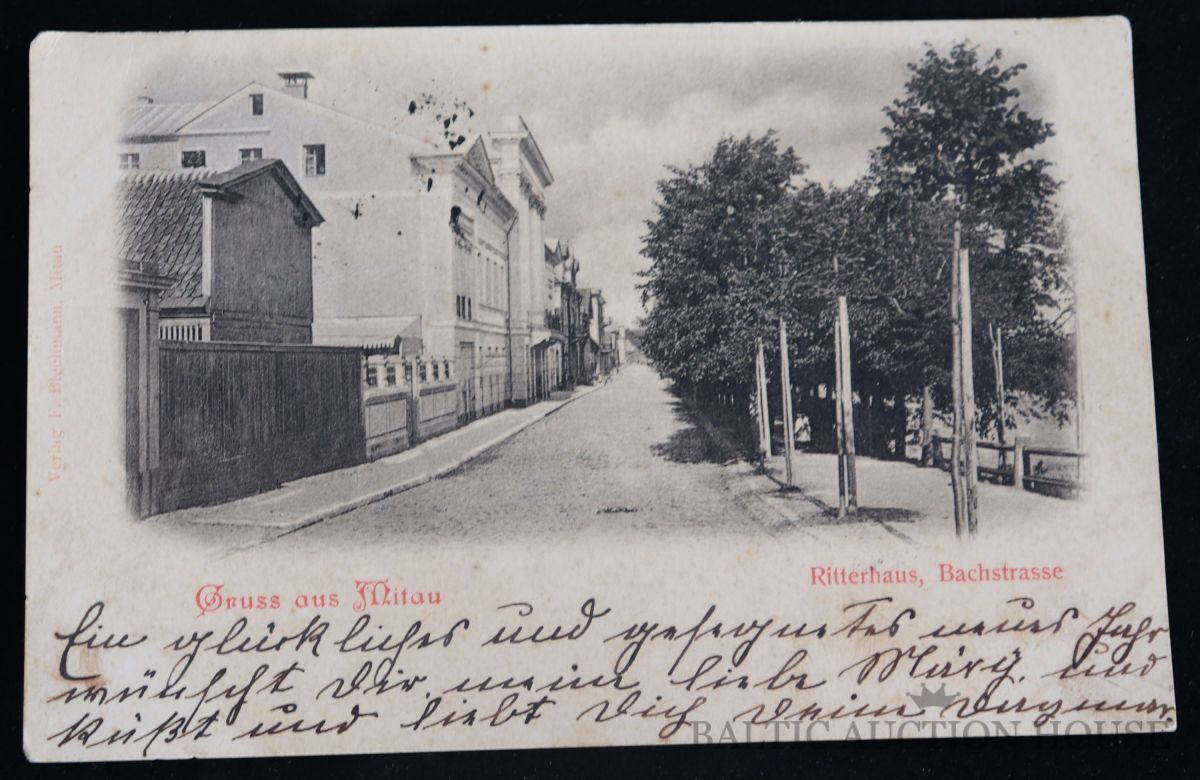 Verlag F. Blechmann. Mitau
Gruss aus Mitau
Ritterhaus, Bachstrasse
Ein glückliches und gesegnetes neues Jahr
wünscht Dir, meine liebe Märy, und
küßt und liebt Dich Deine Dagmar.
BALTIC AUCTION HOUSE